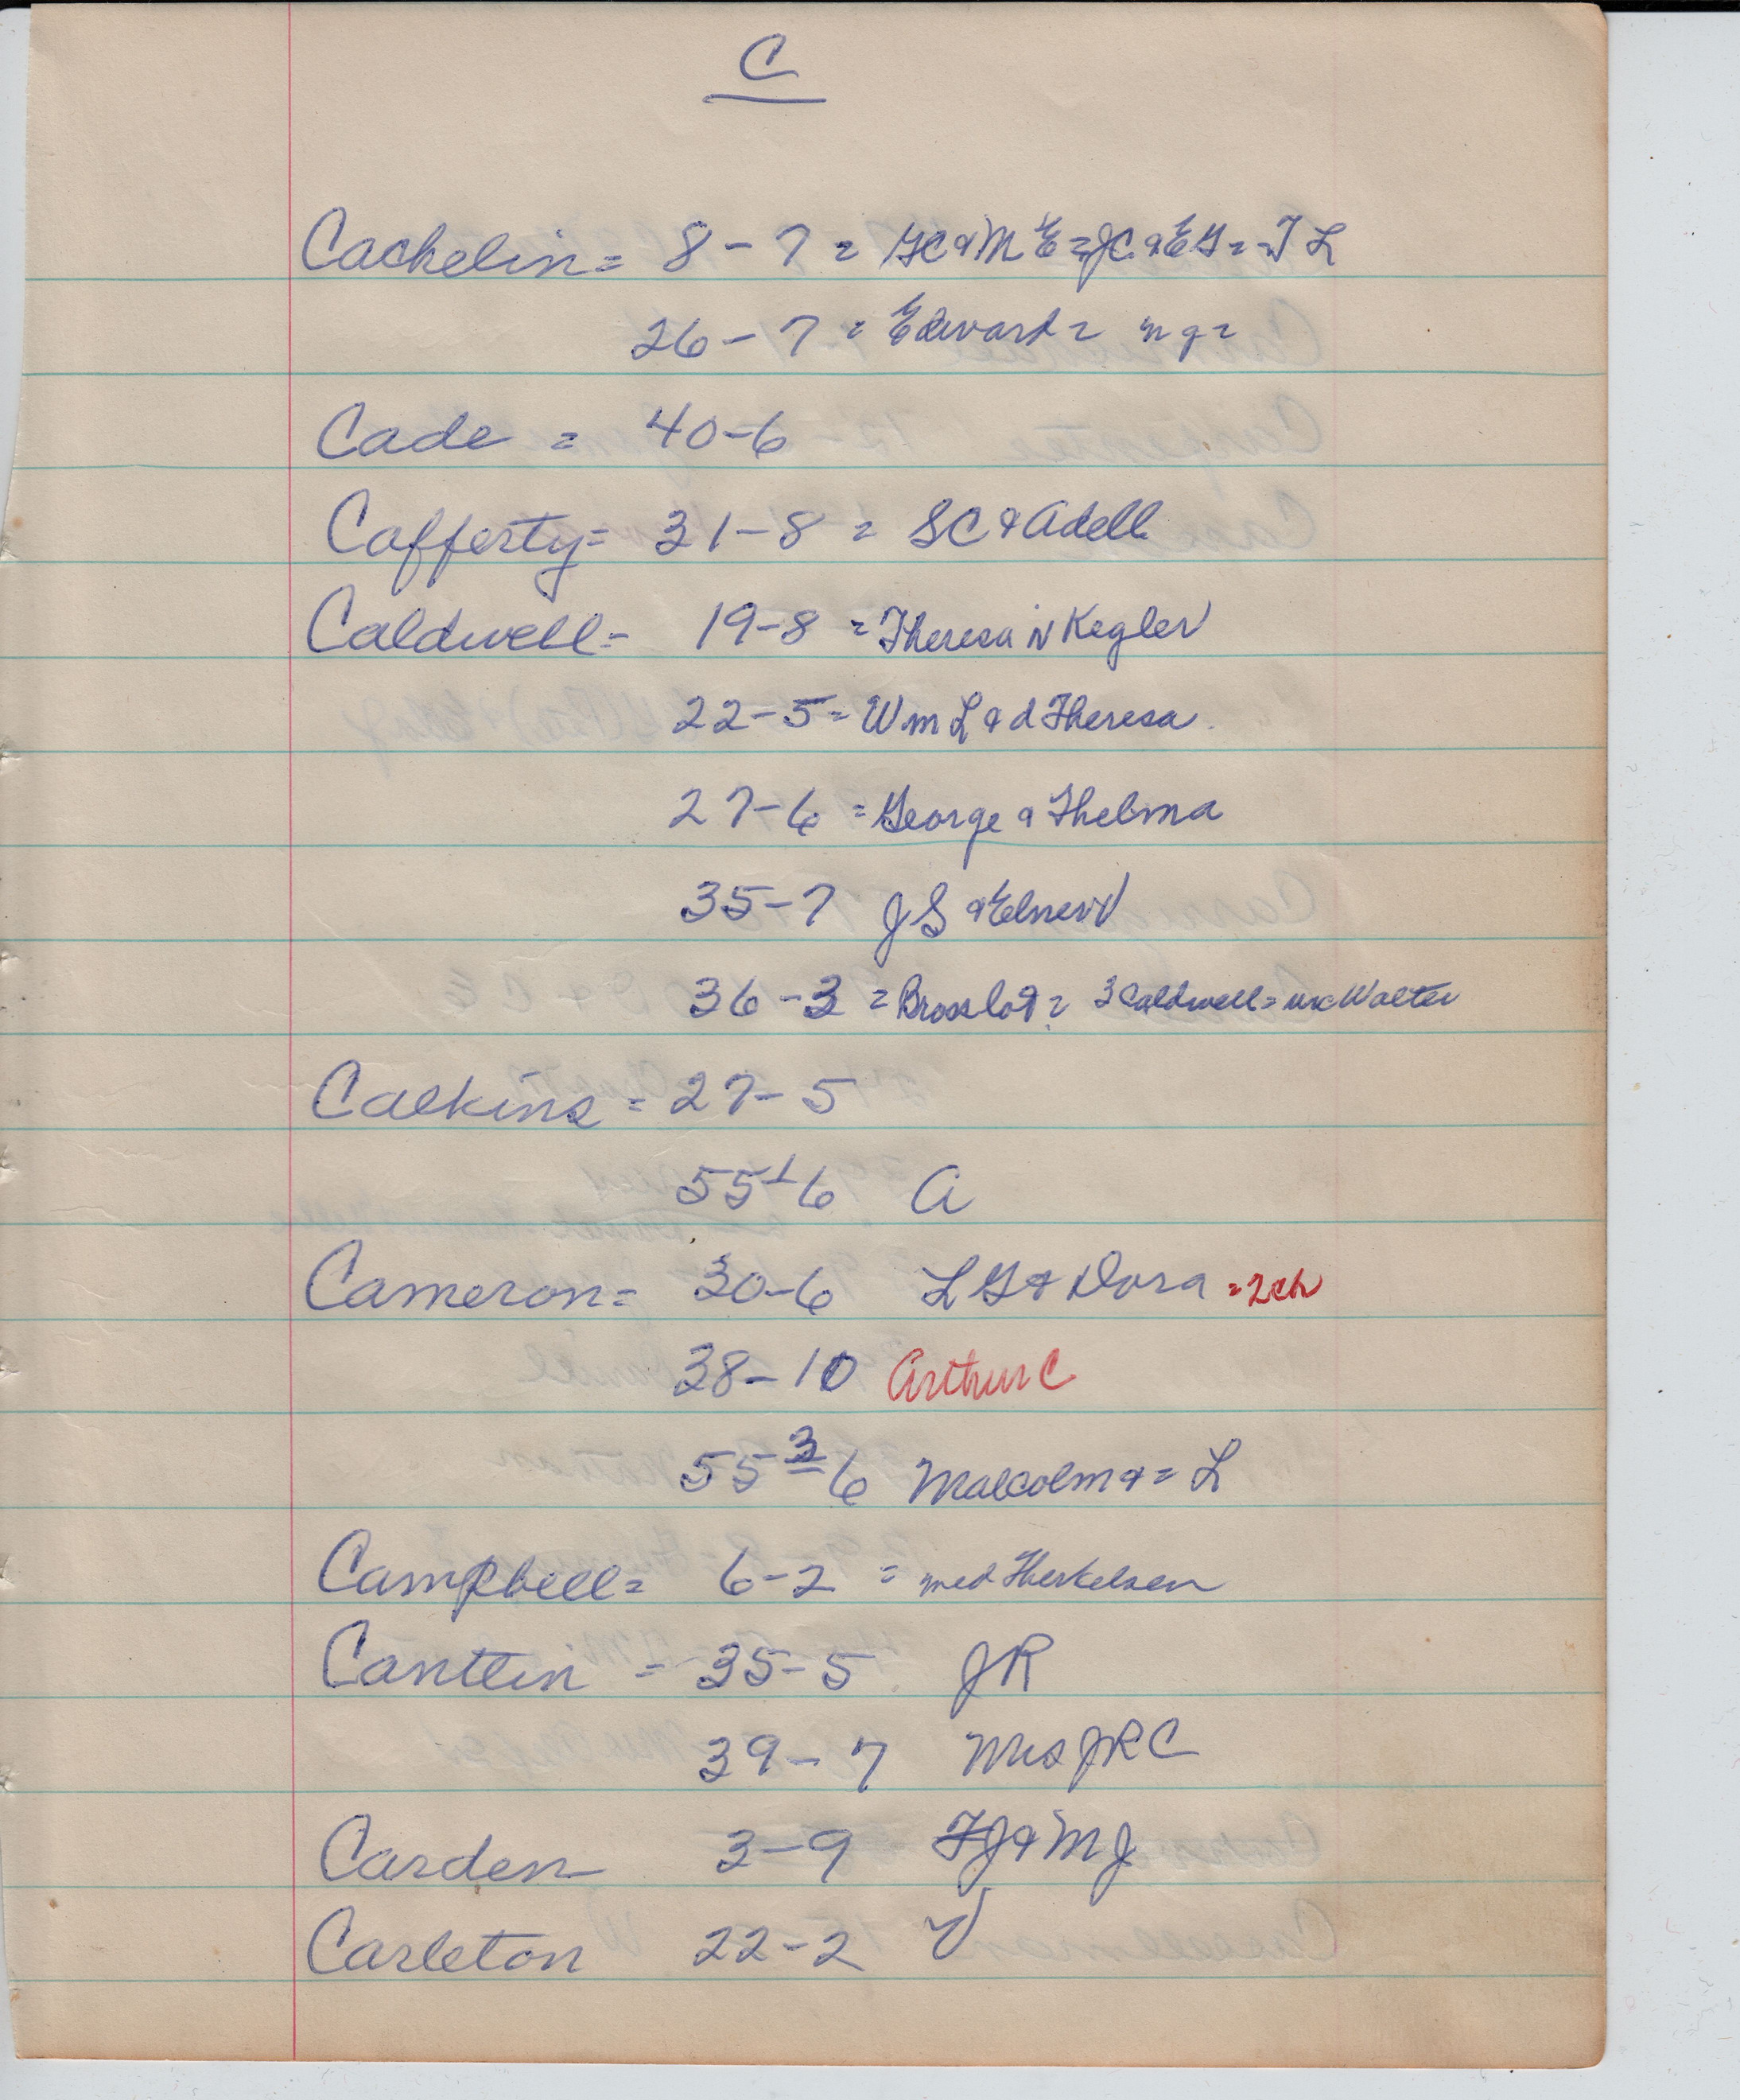 C
Cachelin = 8 - 7 = GC & M E = JC & EG = = T L
26 - 7 = Edward = m g =
Cade = 40-6
Cafferty = 31-8 = SC & Adell
Caldwell - 19-8 = Theresa N Kegler
22-5 = Wm L & d Theresa
27-6 = George & Thelma
35-7 J S &
36-3 = = 3 Caldwell = Walter
Calkins = 27-5
55 1 6 A
Cameron = 30-6 L G & Dora = 2 ch
38-10 Arthur C
55 3 6 Malcolm & = L
Campbell = 6-2 = med Therkelsen
Canttin = 35-5 JR
39-7 Mrs JRC
Carden 3-9 FJ & MJ
Carleton 22-2 V